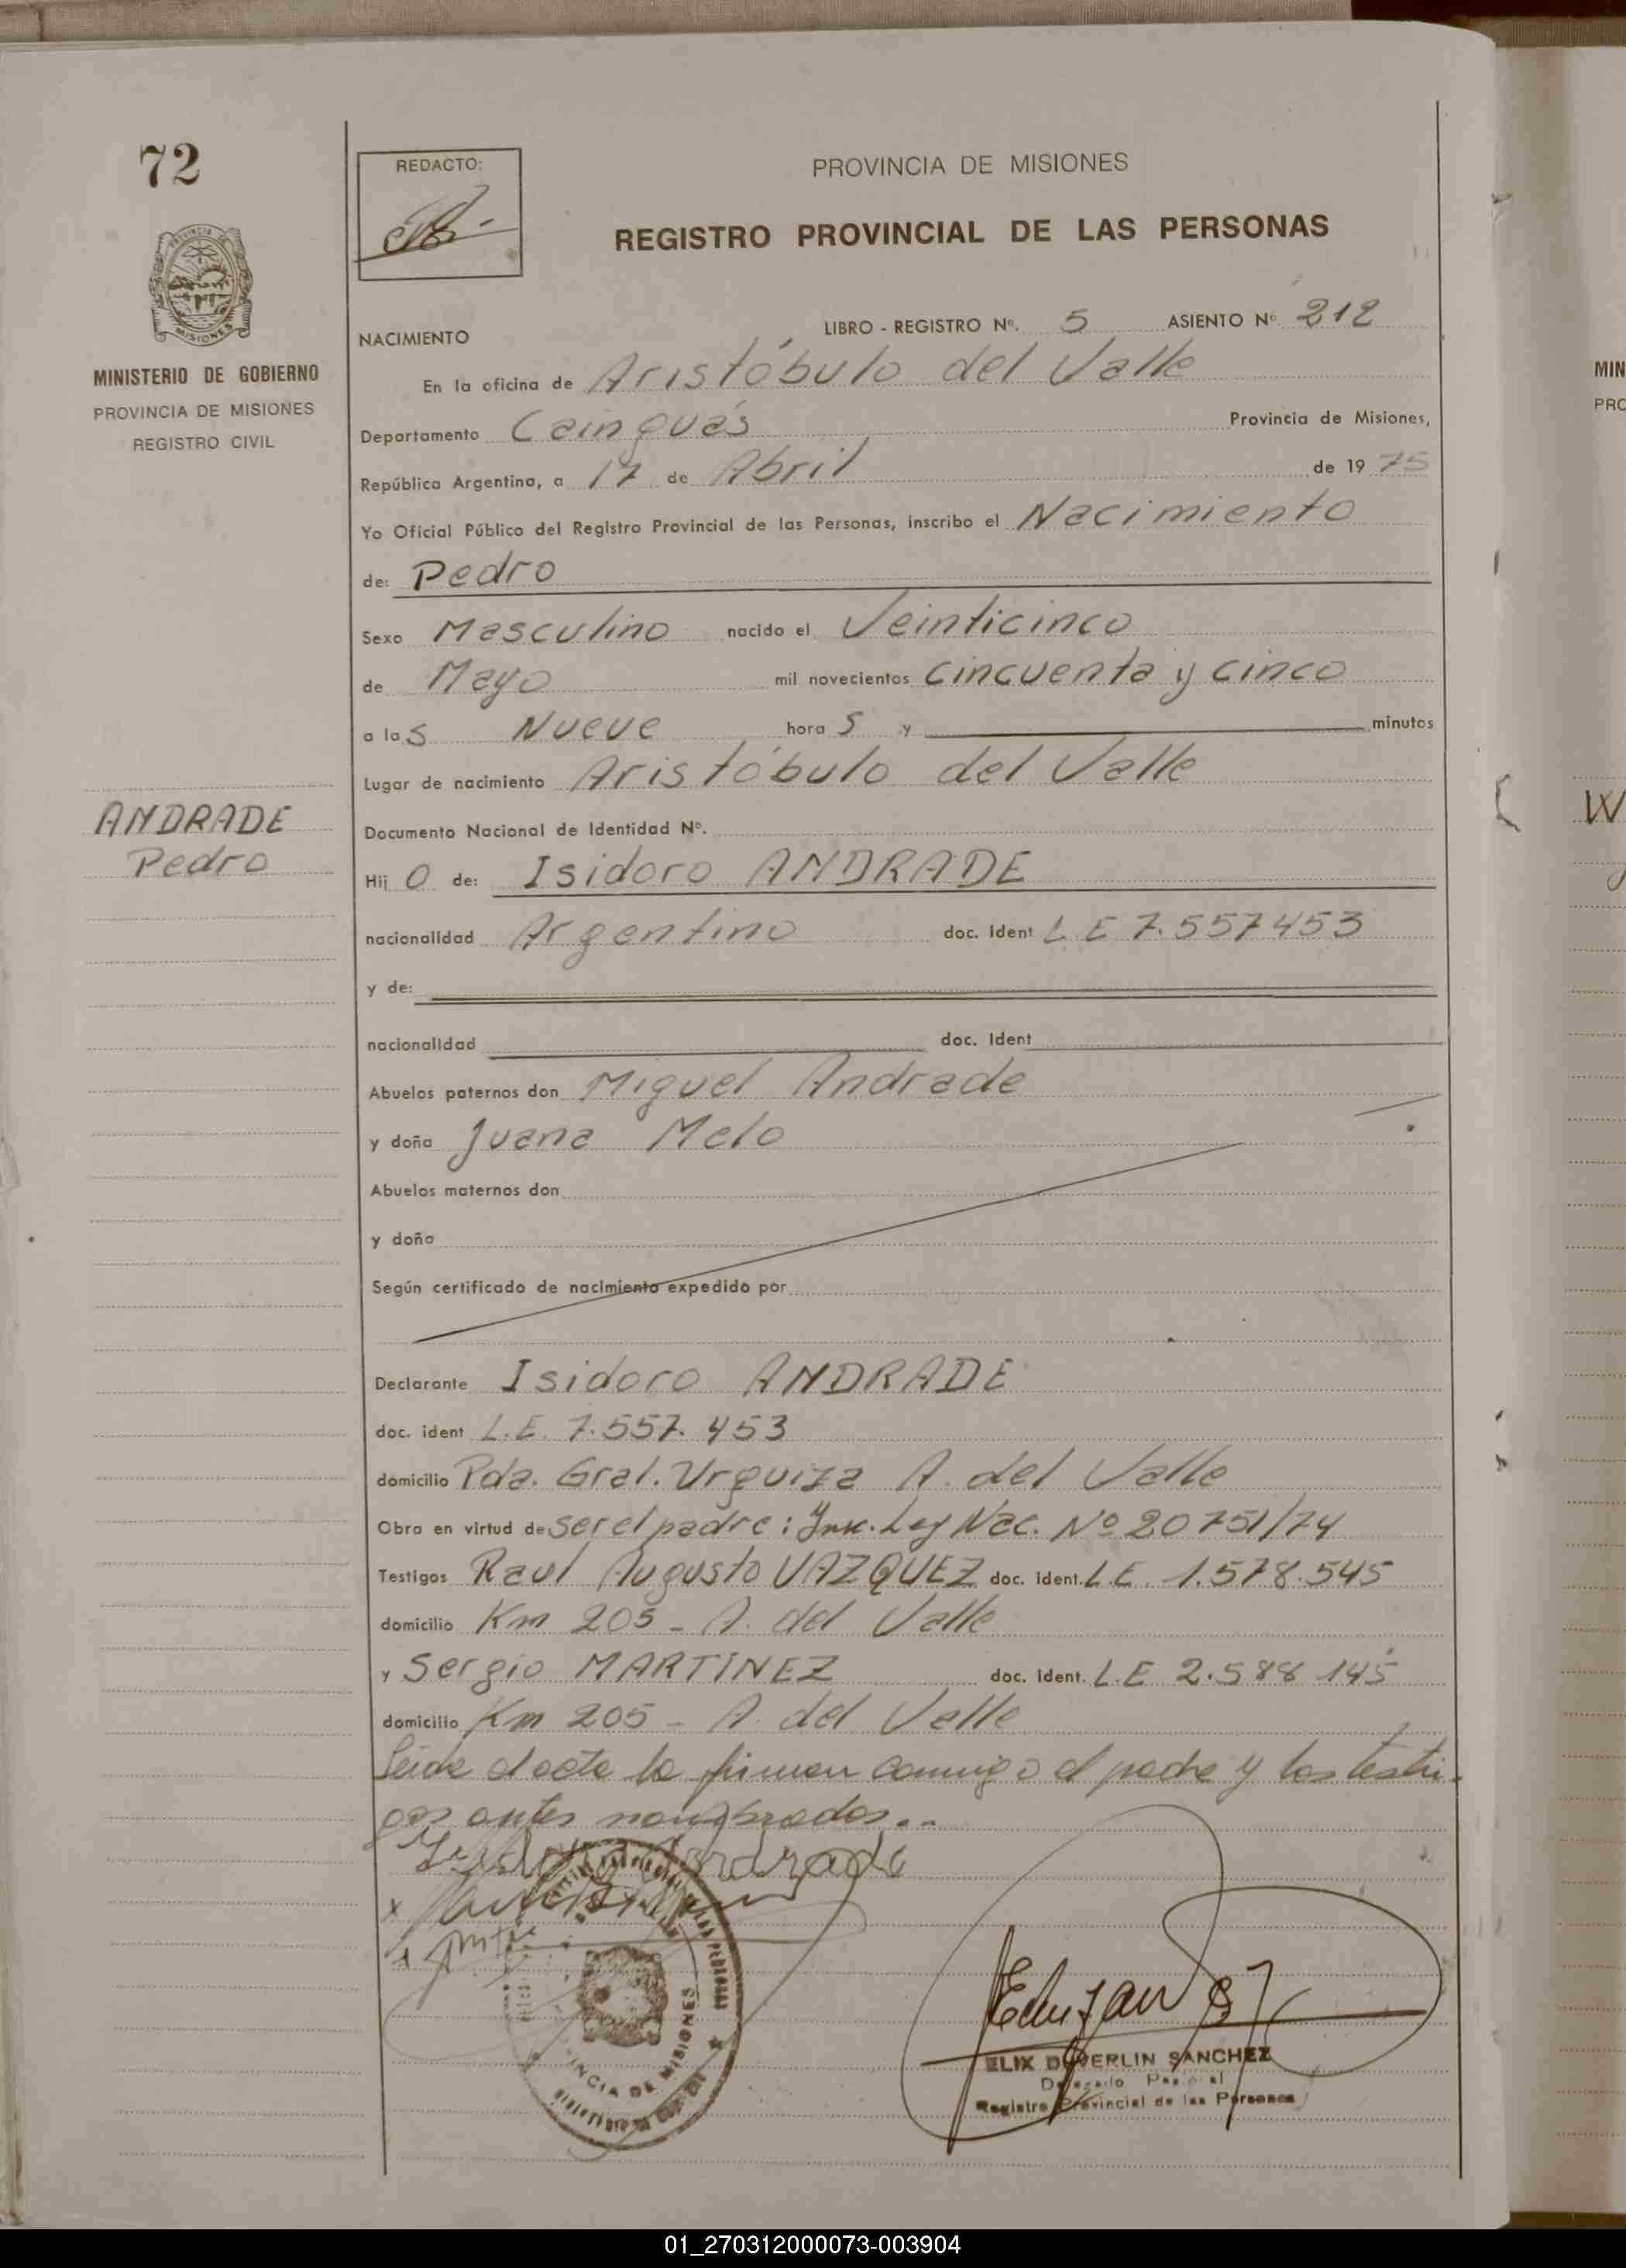 72
REDACTO:
PROVINCIA DE MISIONES
REGISTRO PROVINCIAL DE LAS PERSONAS
MINISTERIO DE GOBIERNO
PROVINCIA DE MISIONES
REGISTRO CIVIL
ANDRADE
Pedro
NACIMIENTO LIBRO - REGISTRO Nº. 5 ASIENTO Nº 212
En la oficina de Aristóbulo del Valle
Departamento Cainguás Provincia de Misiones,
República Argentina, a 17 de Abril de 19 75
Yo Oficial Público del Registro Provincial de las Personas, inscribo el Nacimiento
de: Pedro
Sexo Masculino nacido el Veinticinco
de Mayo mil novecientos cincuenta y cinco
a las Nueve hora s y minutos
Lugar de nacimiento Aristóbulo del Valle
Documento Nacional de Identidad Nº.
Hij o de: Isidoro ANDRADE
nacionalidad Argentino doc. ident L E 7.557453
y de:
nacionalidad doc. ident
Abuelos paternos don Miguel Andrade
y doña Juana Melo
Abuelos maternos don
y doña
Según certificado de nacimiento expedido por
Declarante Isidoro ANDRADE
doc. ident L.E. 7.557.453
domicilio Pda. Gral. Urquiza A. del Valle
Obra en virtud de ser el padre: Ley Nac. Nº 20751/74
Testigos Raul Augusto VAZQUEZ doc. ident. L E. 1.578.545
domicilio Km 205 - A. del Valle
y Sergio MARTINEZ doc. ident. L.E 2.588 145
domicilio Km 205 - A. del Valle
Leída el acta la firman conmigo el padre y los testi-
gos antes nombrados..
Andrade
PROVINCIA DE MISIONES
ELIX DUVERLIN SANCHEZ
Registro Provincial de las Personas
MIN
PRO
W
01_270312000073-003904